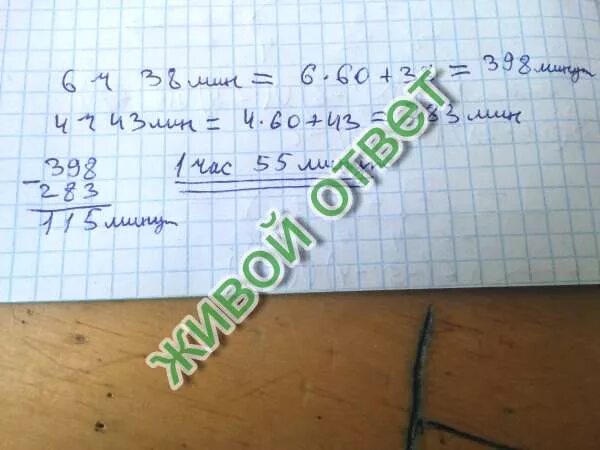 6 ч 38 мин = 6·60 + 38 = 398 минут
4 ч 43 мин = 4·60 + 43 = 283 мин
- 398
283
115 минут
1 час 55
ЖИВОЙ ОТВЕТ